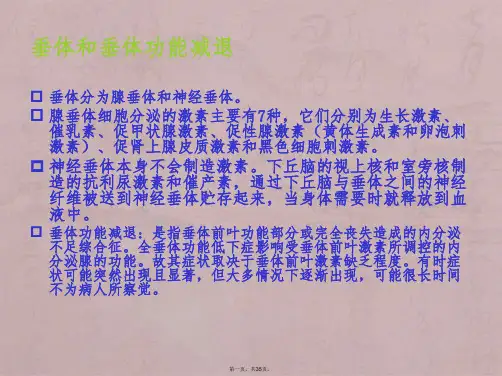 垂体和垂体功能减退
垂体分为腺垂体和神经垂体。
腺垂体细胞分泌的激素主要有7种，它们分别为生长激素、
催乳素、促甲状腺激素、促性腺激素（黄体生成素和卵泡刺
激素）、促肾上腺皮质激素和黑色细胞刺激素。
神经垂体本身不会制造激素。下丘脑的视上核和室旁核制
造的抗利尿激素和催产素，通过下丘脑与垂体之间的神经
纤维被送到神经垂体贮存起来，当身体需要时就释放到血
液中。
垂体功能减退：是指垂体前叶功能部分或完全丧失造成的内分泌
不足综合征。全垂体功能低下症影响受垂体前叶激素所调控的内
分泌腺的功能。故其症状取决于垂体前叶激素缺乏程度。有时症
状可能突然出现且显著，但大多情况下逐渐出现，可能很长时间
不为病人所察觉。
第一页，共38页。